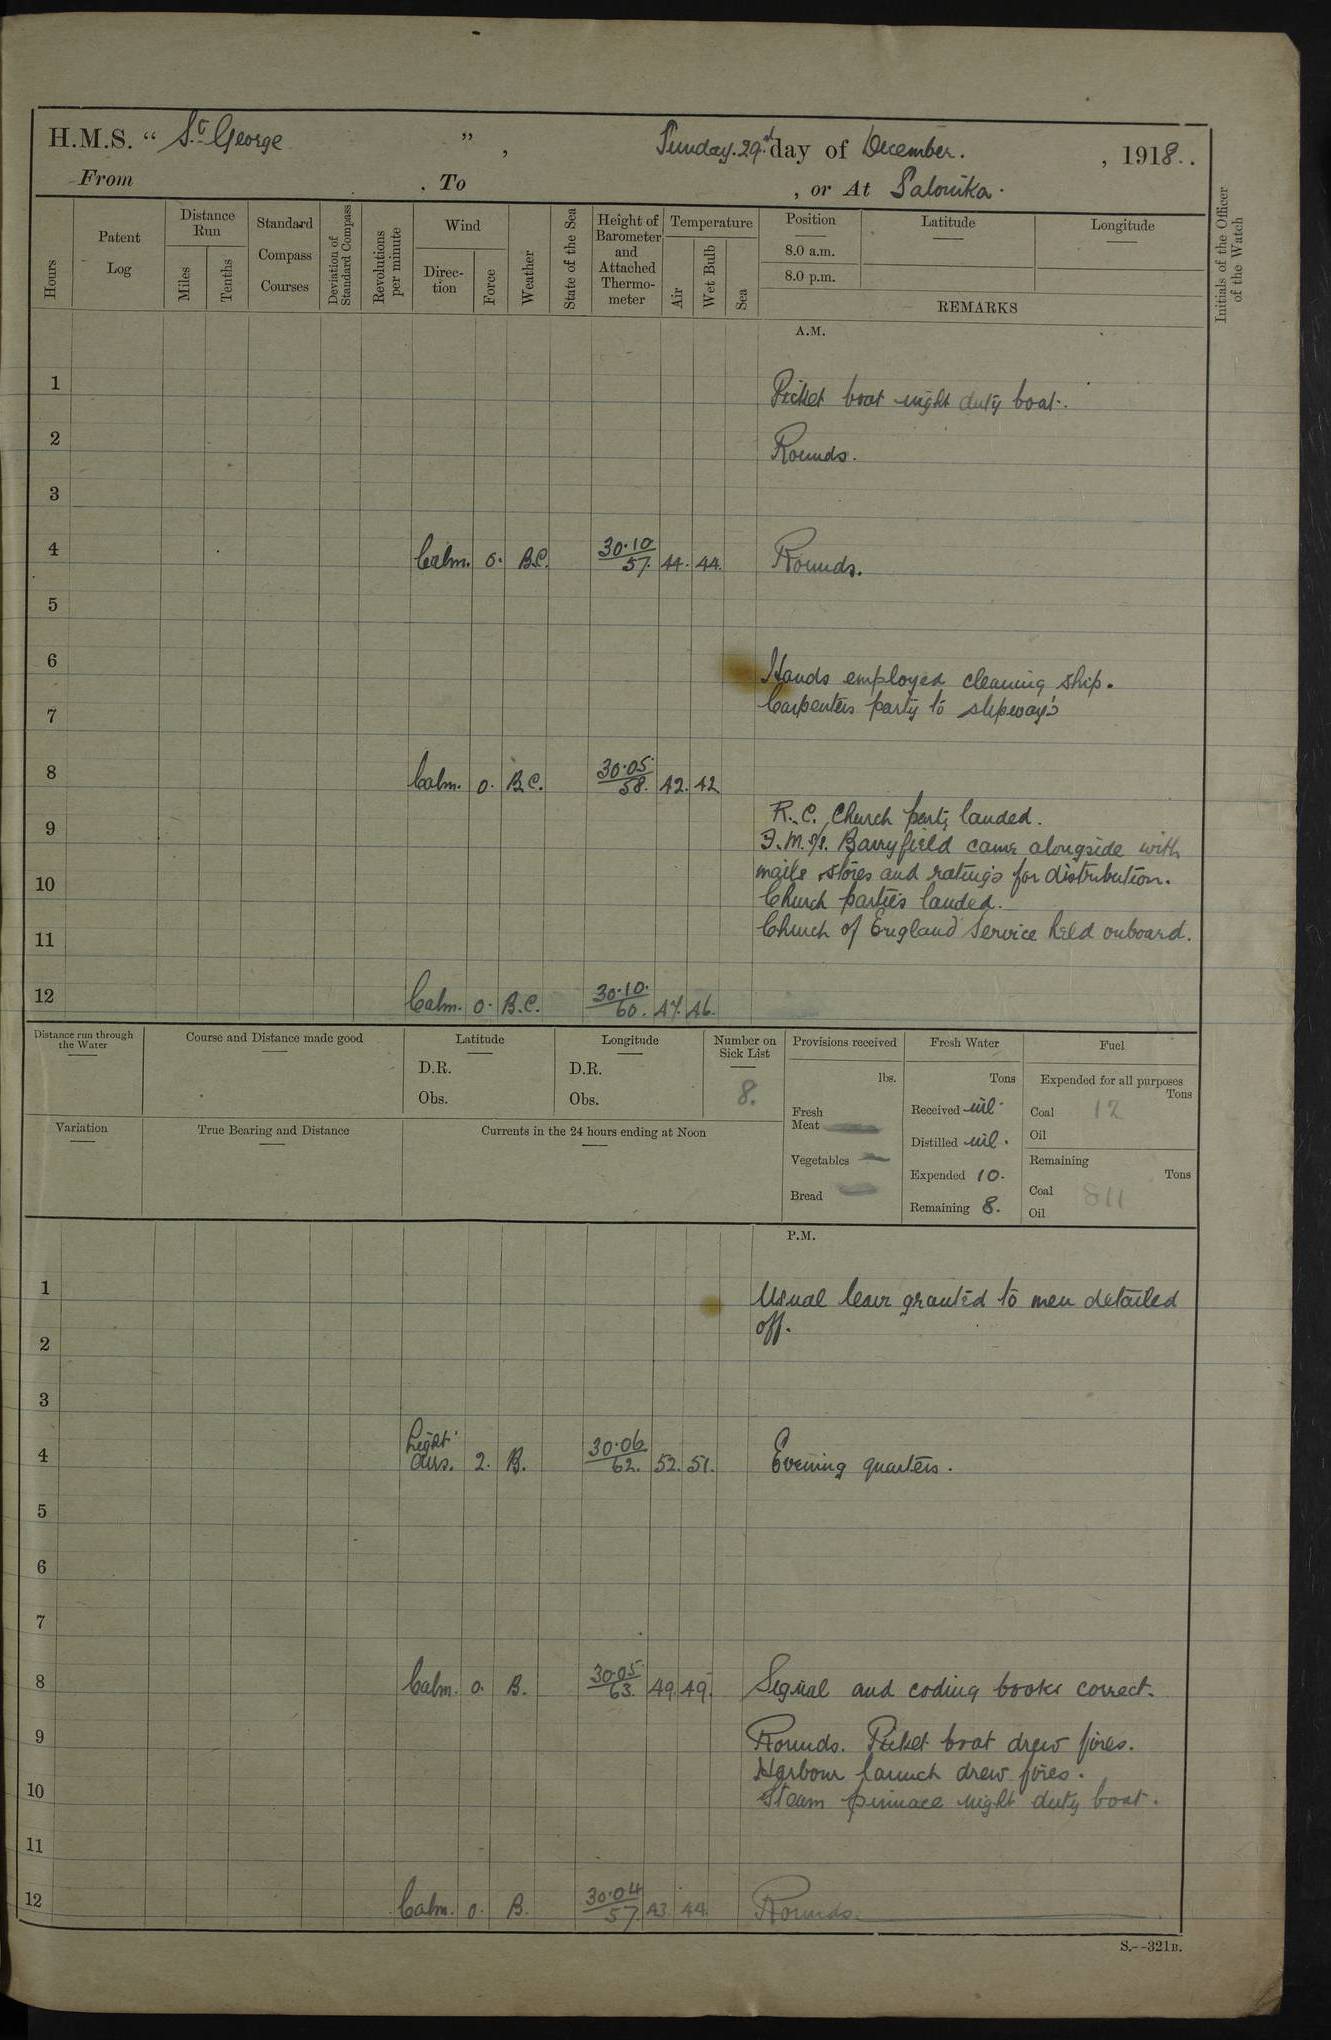 H.M.S. " St. George ", Sunday. 29th day of December. , 1918..
From . To , or At Salonika.
Hours
Patent Log
Distance Run
Miles
Tenths
Standard Compass Courses
Deviation of Standard Compass
Revolutions per minute
Wind
Direction
Force
Weather
State of the Sea
Height of Barometer and Attached Thermometer
Temperature
Air
Wet Bulb
Sea
Position
8.0 a.m.
8.0 p.m.
Latitude
Longitude
REMARKS
Initials of the Officer of the Watch
A.M.
1
Picket boat night duty boat.
2
Rounds.
3
4 Calm. 0. B.C. 30.10/57. 44. 44. Rounds.
5
6
Hands employed cleaning ship.
7 Carpenters party to slipways
8 Calm. 0. B.C. 30.05/58. 42. 42
R.C. Church party landed.
9
F.M. S/S. Barryfield came alongside with
mails, stores and ratings for distribution.
10
Church parties landed.
11 Church of England Service held onboard.
12 Calm. 0. B.C. 30.10./60. 47. 46.
Distance run through the Water
Course and Distance made good
Latitude
D.R.
Obs.
Longitude
D.R.
Obs.
Number on Sick List
8.
Provisions received
lbs.
Fresh Meat
Vegetables
Bread
Fresh Water
Tons
Received nil.
Distilled nil.
Expended 10.
Remaining 8.
Fuel
Expended for all purposes
Tons
Coal 12
Oil
Remaining
Tons
Coal 811
Oil
Variation
True Bearing and Distance
Currents in the 24 hours ending at Noon
P.M.
1 Usual leave granted to men detailed
off.
2
3
4 Light airs. 2. B. 30.06/62. 52. 51. Evening quarters.
5
6
7
8 Calm. 0. B. 30.05/63. 49. 49. Signal and coding books correct.
9 Rounds. Picket boat drew fires.
Harbour launch drew fires.
10 Steam pinnace night duty boat.
11
12 Calm. 0. B. 30.04/57. 43. 44. Rounds.
S.--321B.